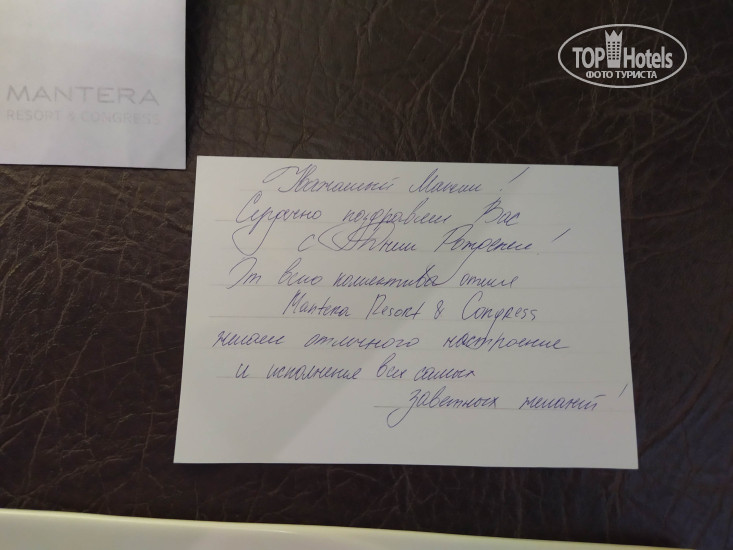 TOP Hotels
ФОТО ТУРИСТА
MANTERA
RESORT & CONGRESS
Уважаемый Максим!
Сердечно поздравляем Вас
с Днем Рождения!
От всего коллектива отеля
Mantera Resort & Congress
желаем отличного настроения
и исполнения всех самых
заветных желаний!